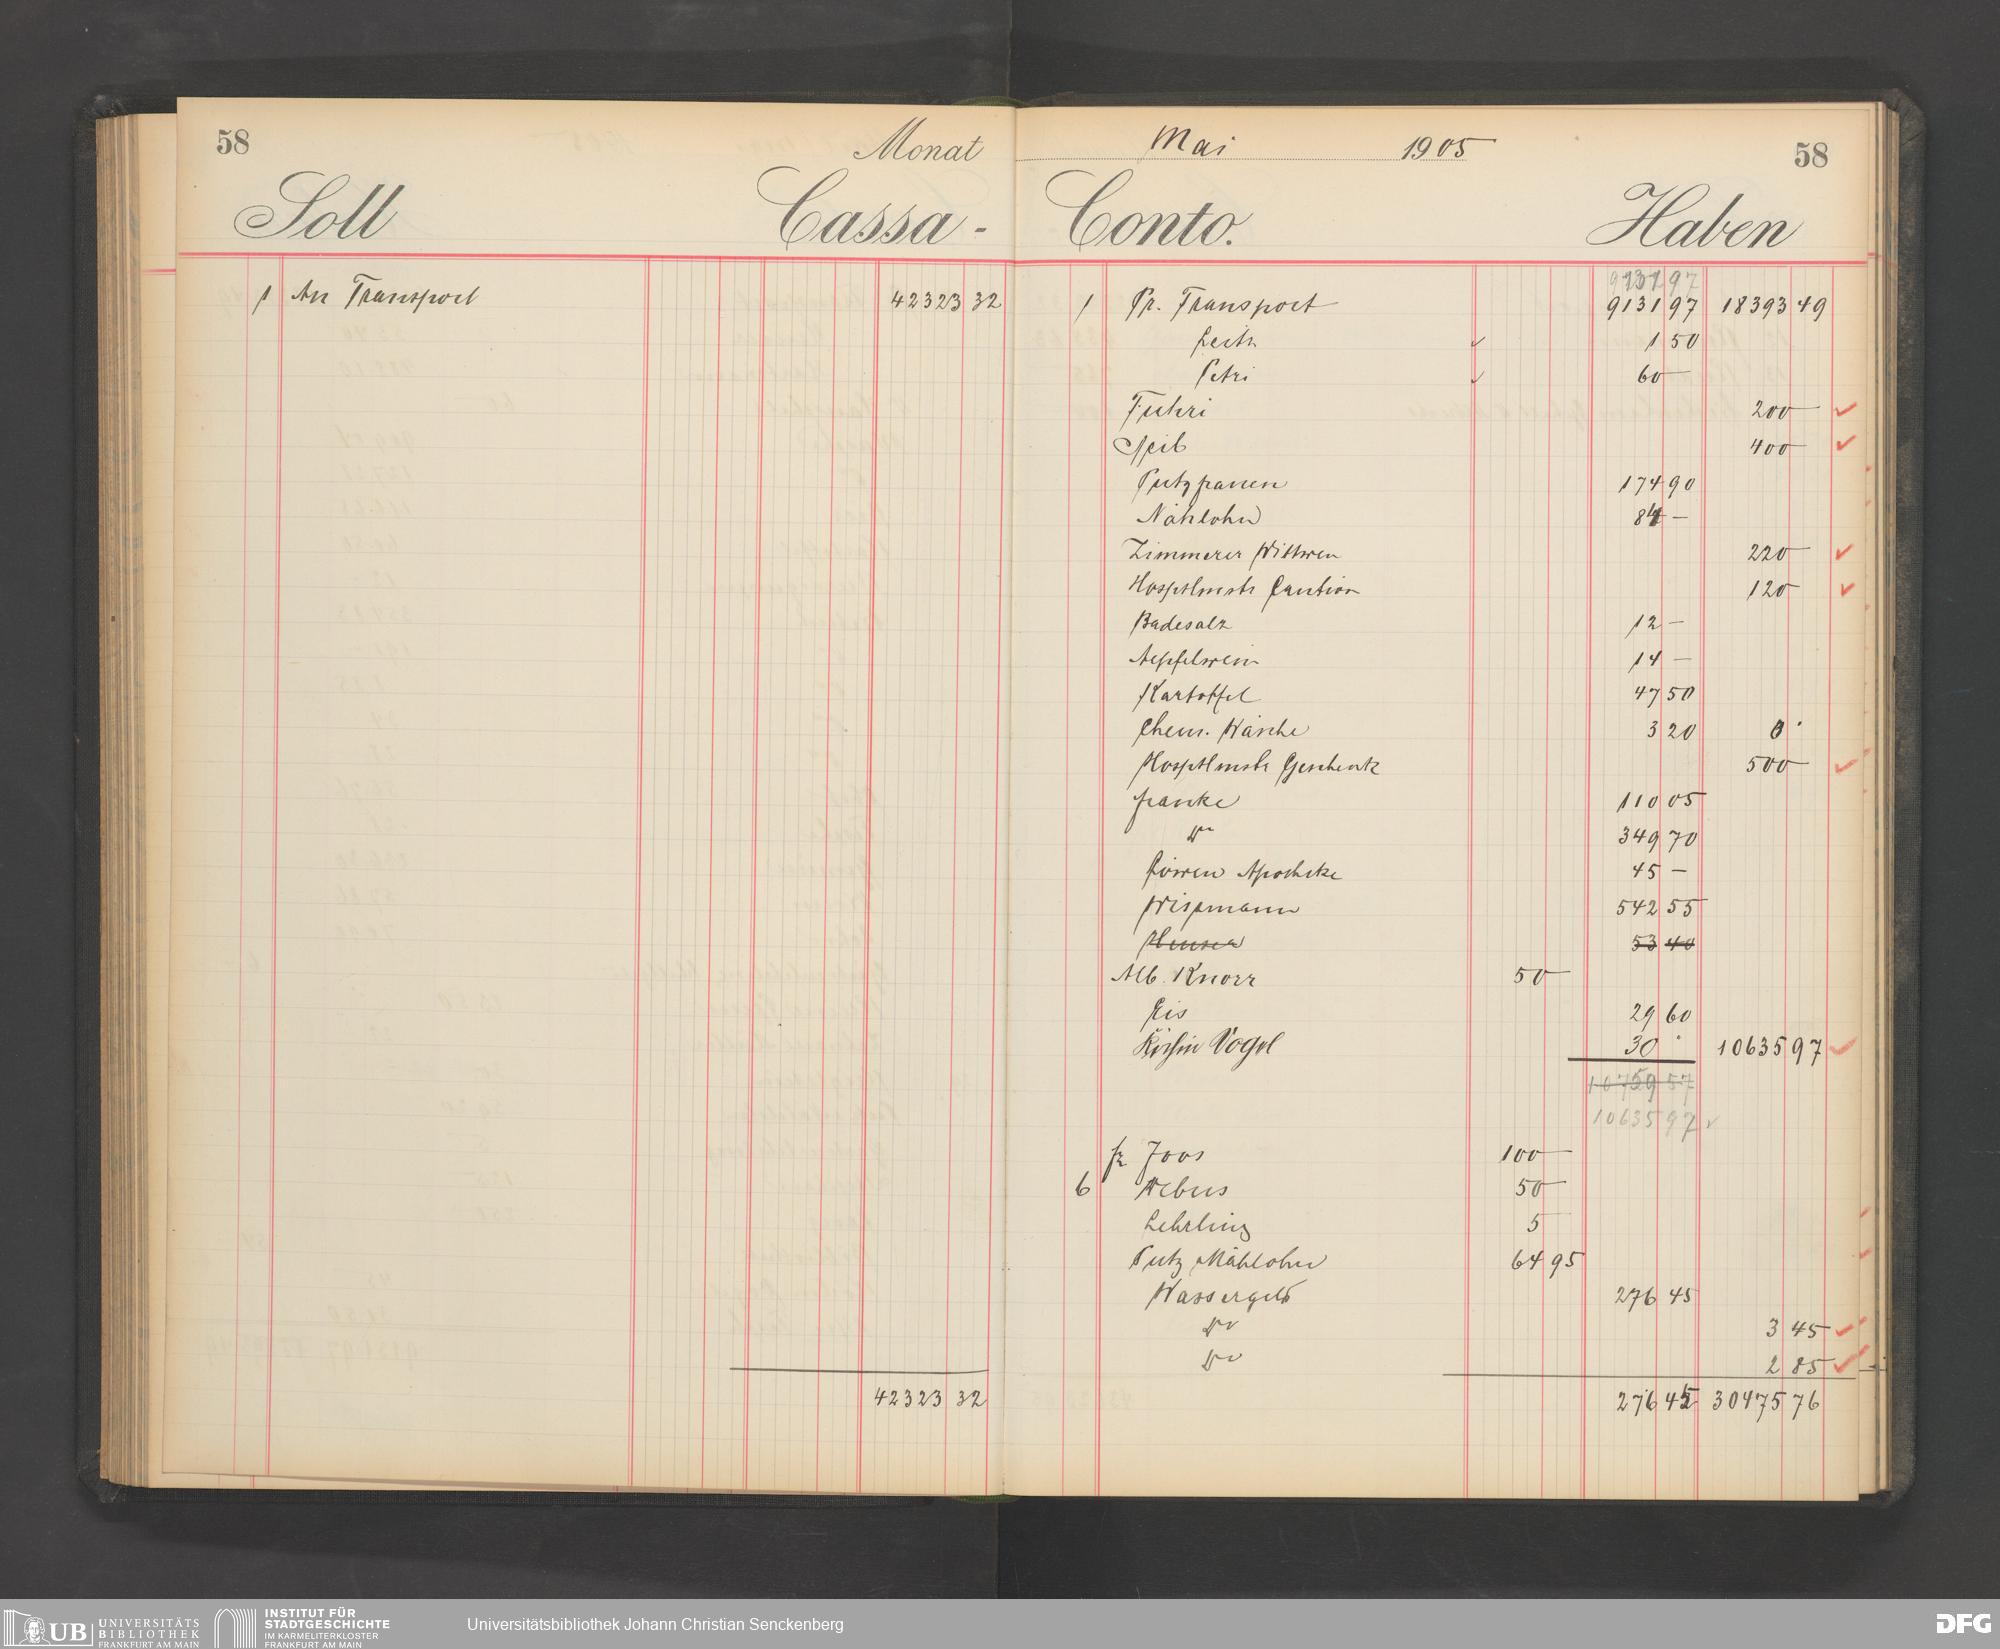 58 Monat Mai 1905 58
Soll Cassa - Conto. Haben
9131 97
1 An Transport 42323 32
1 Pr. Transport 9131 97 18393 49
Leith 1 50
Petri 60 —
Führi 200 —
400 —
Putzfrauen 174 90
Nählohn 84 —
Zimmerer Wittwen 220 —
Hosptlmstr Caution 120 —
Badesalz 12 —
Aepfelwein 14 —
Kartoffel 47 50
Chem. Wäsche 3 20 0
Hosptlmstr Geschenk 500 —
Franke 110 05
Do 349 70
Löwen Apotheke 45 —
Wispmann 542 55
53 40
Alb. Knorr 50 —
Eis 29 60
Köchin Vogel 30 10635 97
10759 57
10635 97
fr Joos 100 —
6 Nebus 50 —
Lehrling 5
Putz Nählohn 64 95
Wassergeld 276 45
Do 3 45
Do 2 85
42323 32 276 45 30475 76
UB UNIVERSITÄTS
BIBLIOTHEK
FRANKFURT AM MAIN
INSTITUT FÜR
STADTGESCHICHTE
IM KARMELITERKLOSTER
FRANKFURT AM MAIN
Universitätsbibliothek Johann Christian Senckenberg
DFG